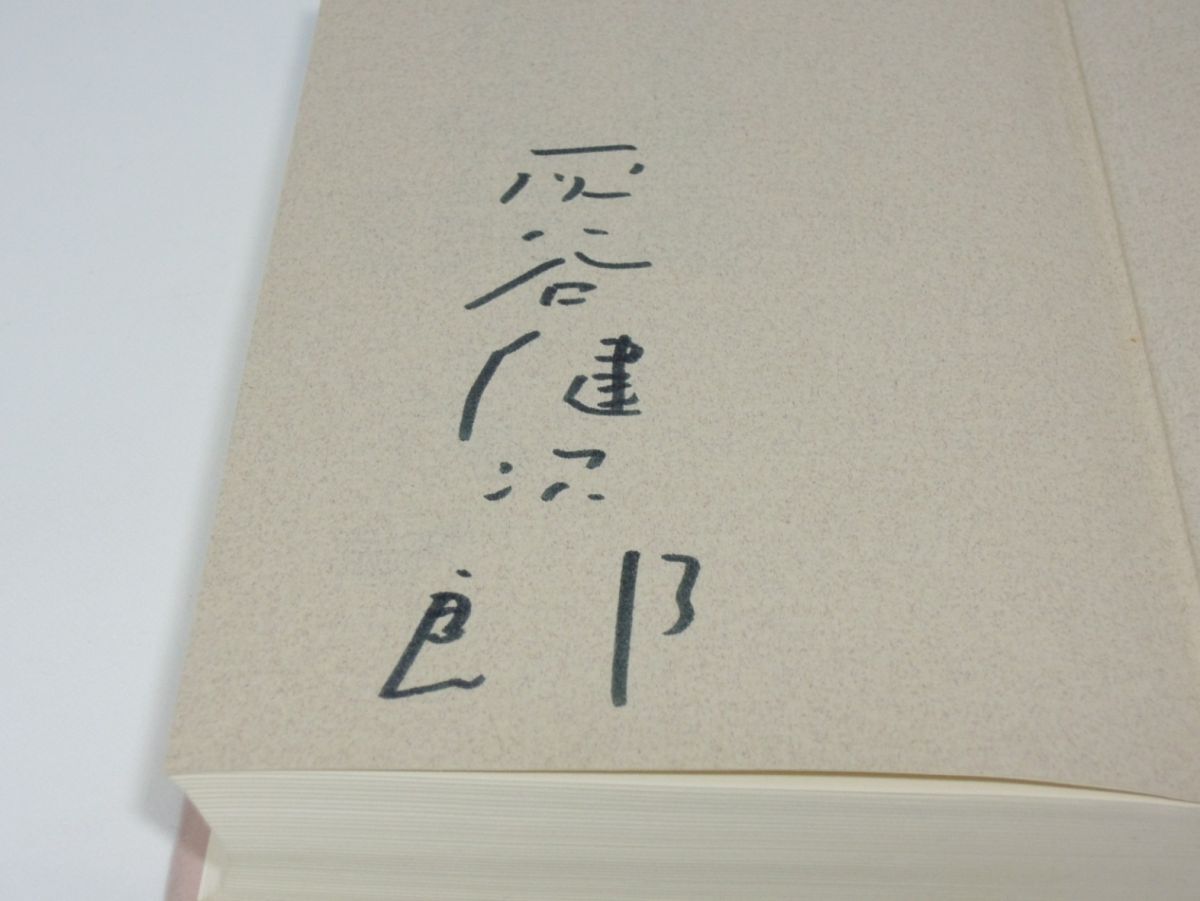 灰谷健次郎